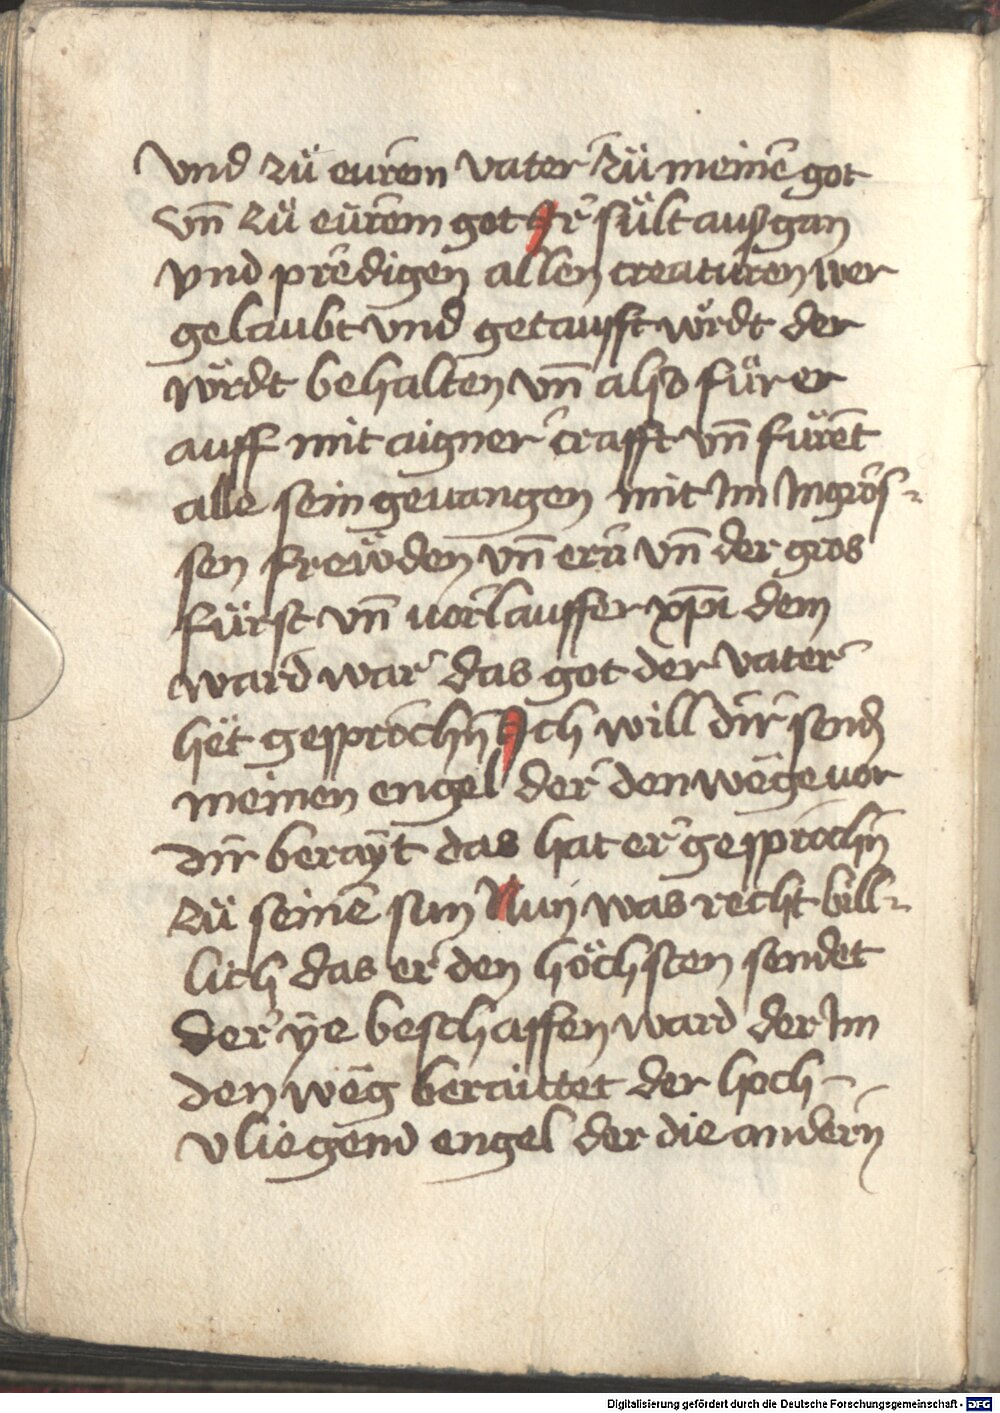 vnd zü eurem vater zü meinē got
vn̄ zü eurem got Ir sült außgan
vnd predigen allen creaturen wer
gelaubt vnd getaufft wirdt der
wirdt behalten vn̄ also für er
auff mit aigner crafft vn̄ fürēt
alle sein geuangen mit Im In gros-
sen frewden vn̄ ern vn̄ der gros
fürst vn̄ uorlauffer xp̄i dem
ward war das got der vater
het gesprochn̄ Ich will dir send
meinen engel der den wege vor
dir berayt das hat er gesprochn̄
zü seinē sun Nun was recht bill-
lich das er den höchsten sendet
der ye beschaffen ward der Im
den weg beraittet der hoch-
vliegend engel der die andern
Digitalisierung gefördert durch die Deutsche Forschungsgemeinschaft - DFG